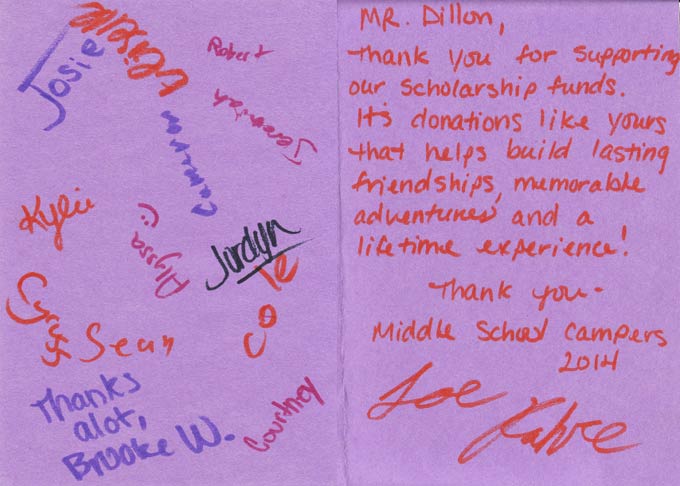 Josie
Robert
Jeremiah
Cameron
Kylie
Alyssa
Jordyn
Cole
Cyrus
Sean
Thanks
alot,
Brooke W.
Courtney
MR. Dillon,
Thank you for supporting
our scholarship funds.
It's donations like yours
that helps build lasting
friendships, memorable
adventures and a
lifetime experience!
Thank you-
Middle School Campers
2014